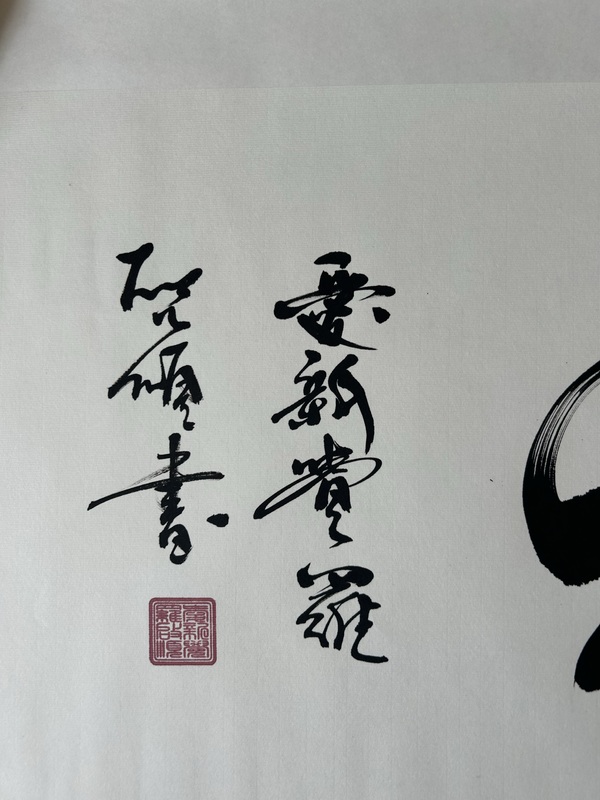 愛新覺羅
啟書
愛新覺
羅啟